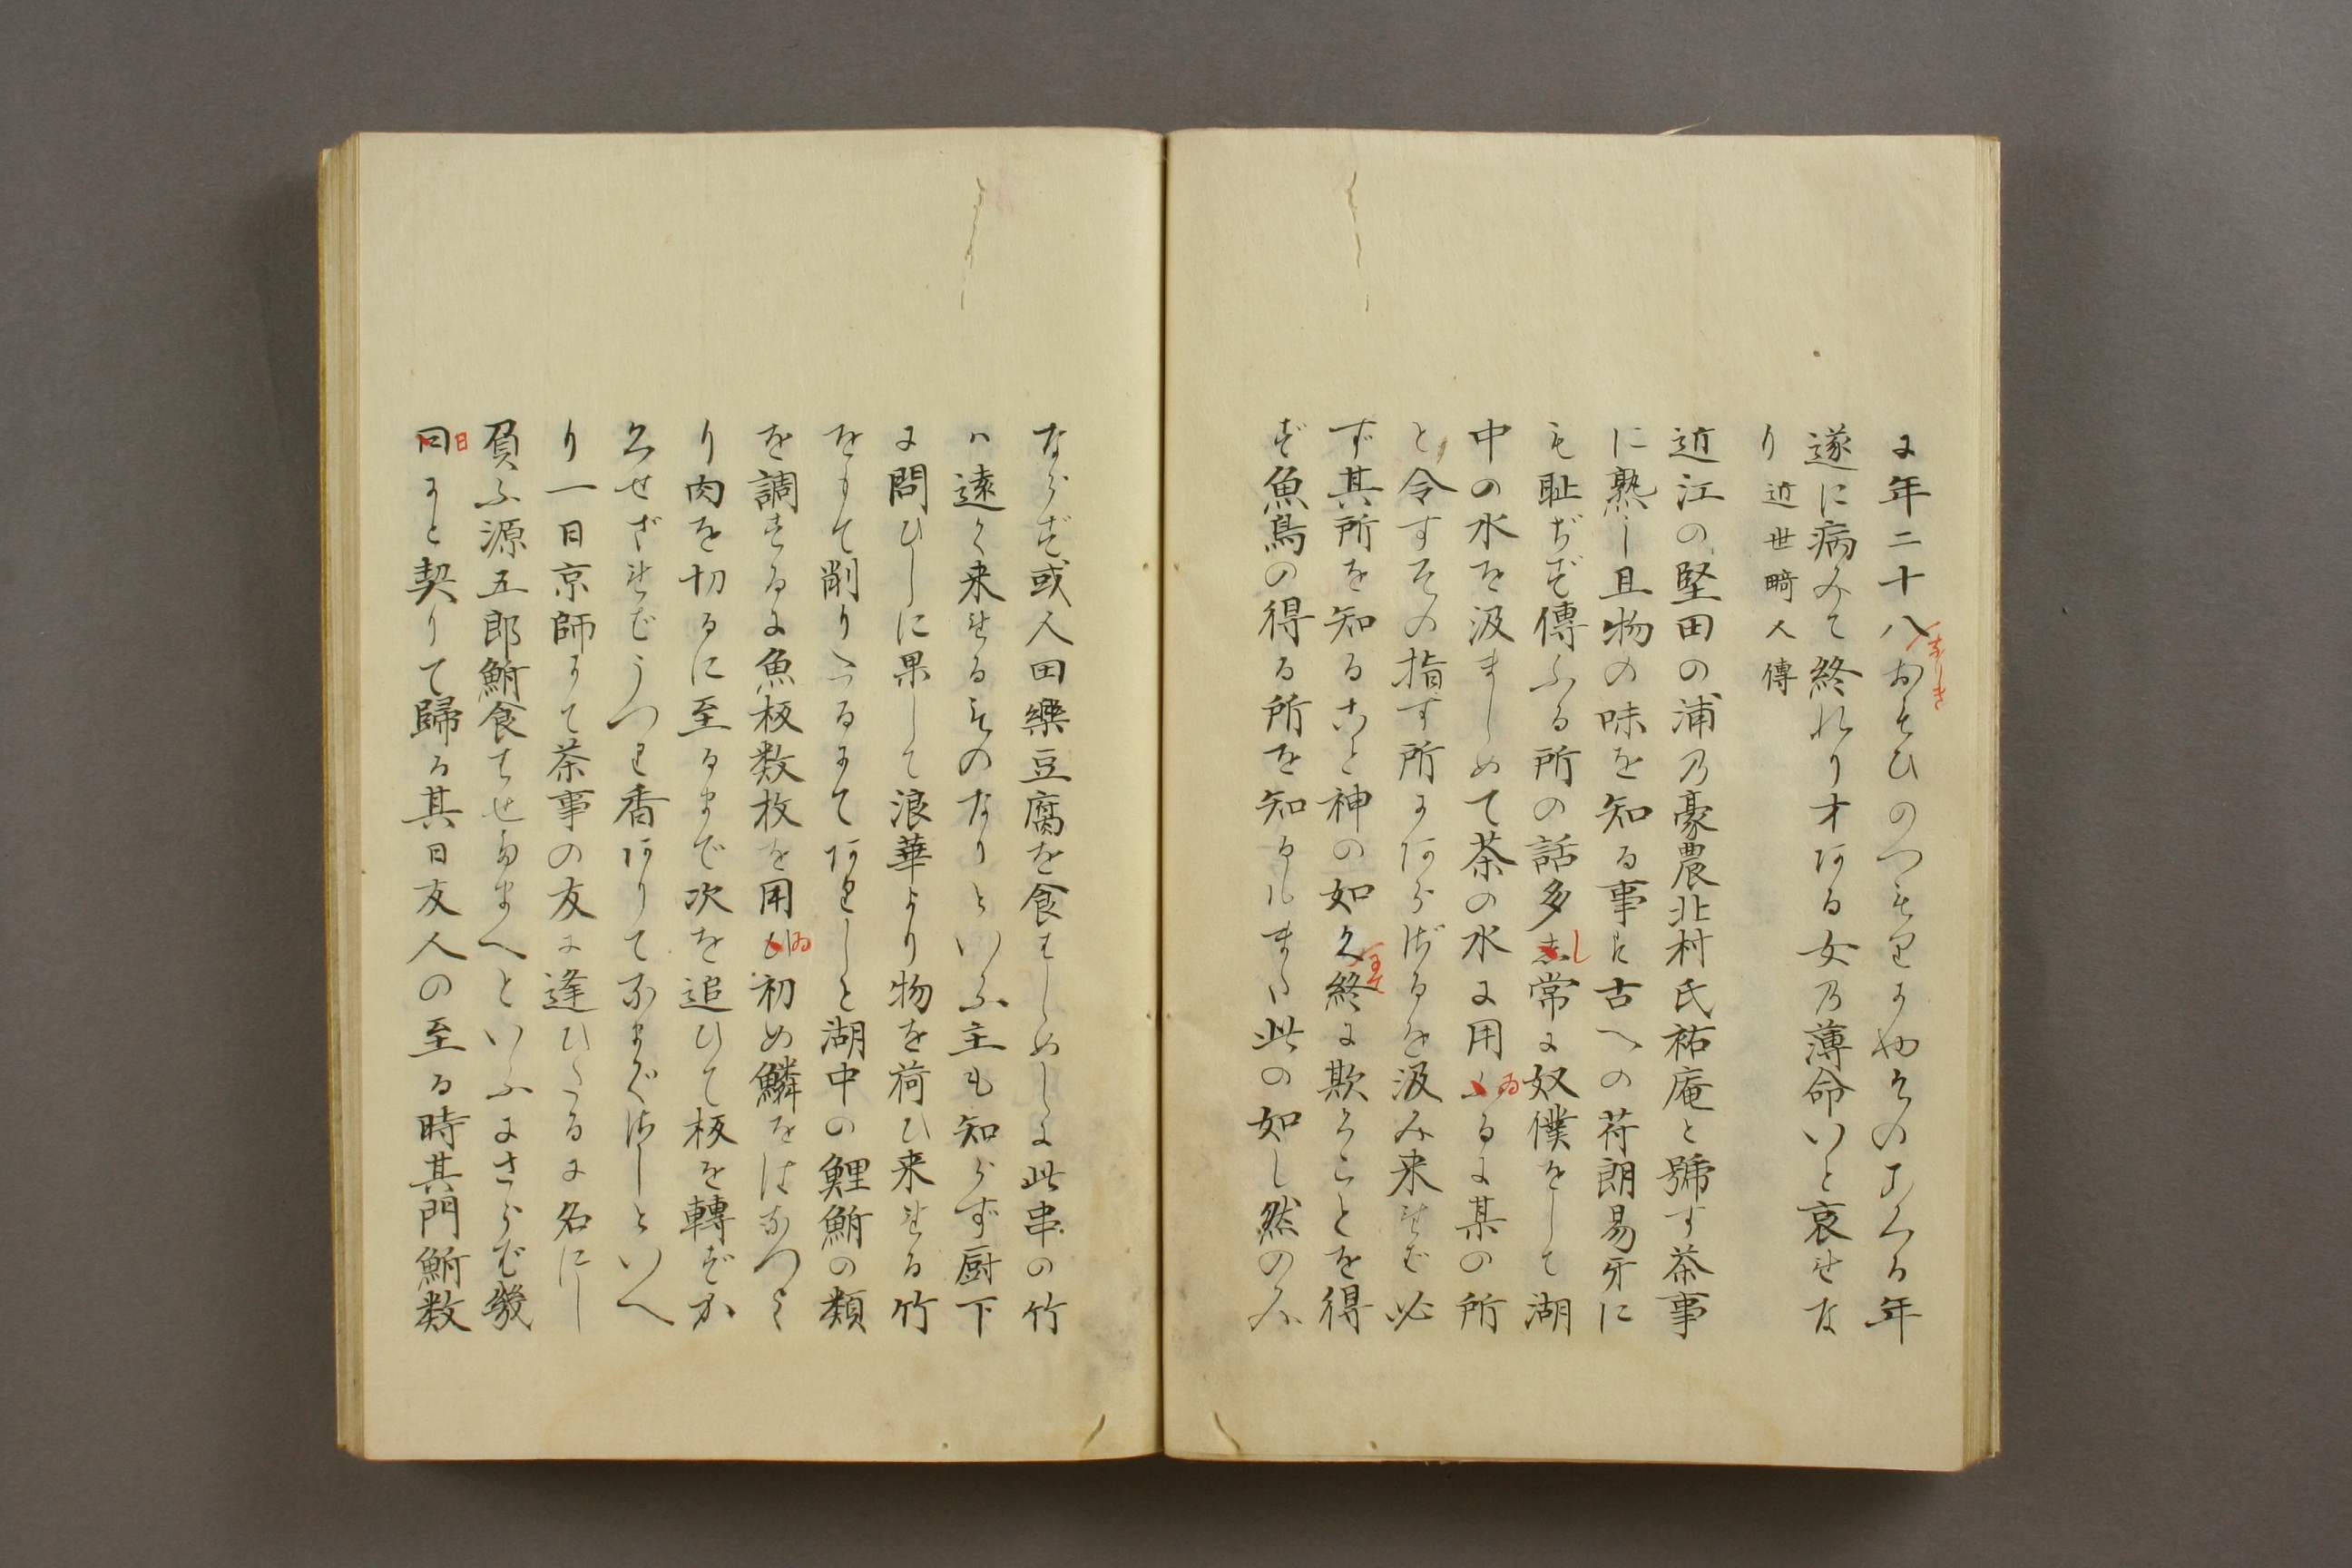 に年二十八なりきおもひのつもりにやそのあくる年
遂に病みて終れり才ある女の薄命いと哀れな
り近世畸人傳
近江の堅田の浦乃豪農北村氏祐庵と號す茶事
に熟し且物の味を知る事は古への苻朗易牙に
も耻ぢず傳ふる所の話多し常に奴僕をして湖
中の水を汲ましめて茶の水に用ゐるに某の所
と令すその指す所にあらざるを汲み来れば必
ず其所を知ること神の如くにて終に欺くことを得
ず魚鳥の得る所を知るもまた此の如し然のみ
ならず或人田樂豆腐を食はしめしに此串の竹
は遠く来れるものなりといふ主も知らず厨下
に問ひしに果して浪華より物を荷ひ来れる竹
をもて削りたるにてありしと湖中の鯉鮒の類
を調ずるに魚板数枚を用ゐ初め鱗をはなつよ
り肉を切るに至るまで次を追ひて板を轉ずか
くせざればうつり香ありてなまぐさしといへ
り一日京師にて茶事の友に逢ひたるに名にし
負ふ源五郎鮒食はせたまへといふにさらば幾
日日にと契りて歸る其日友人の至る時其門鮒数